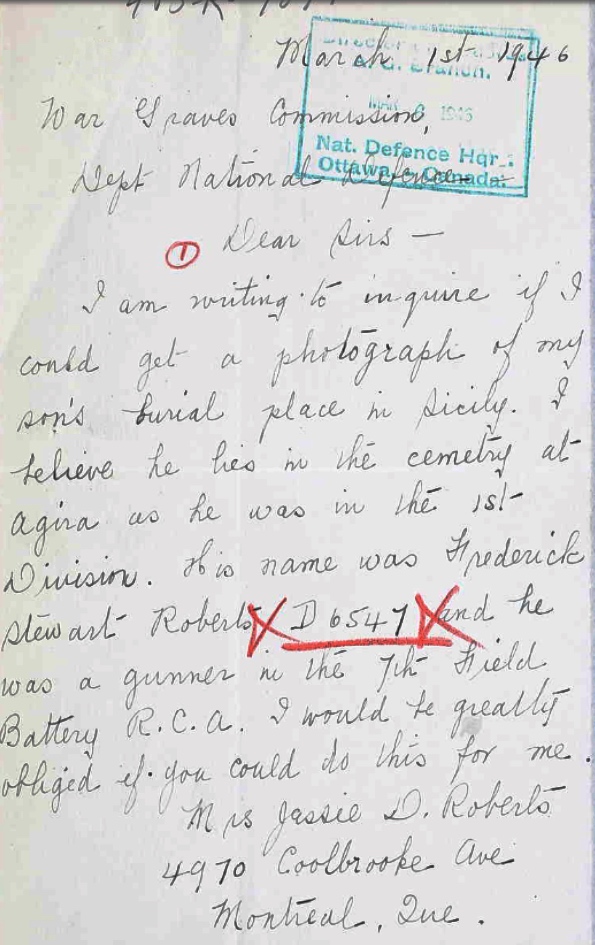 March 1st 1946
A.G. Branch.
MAR 6 1946
Nat. Defence Hqr.:
Ottawa, Canada.
War Graves Commission,
Dept National Defence
① Dear Sirs —
I am writing to inquire if I
could get a photograph of my
son's burial place in Sicily. I
believe he lies in the cemetry at
Agira as he was in the 1st
Division. His name was Frederick
Stewart Roberts D 6547 and he
was a gunner in the 7th Field
Battery R.C.A. I would be greatly
obliged if you could do this for me.
Mrs Jessie D. Roberts
4970 Coolbrooke Ave
Montreal, Que.